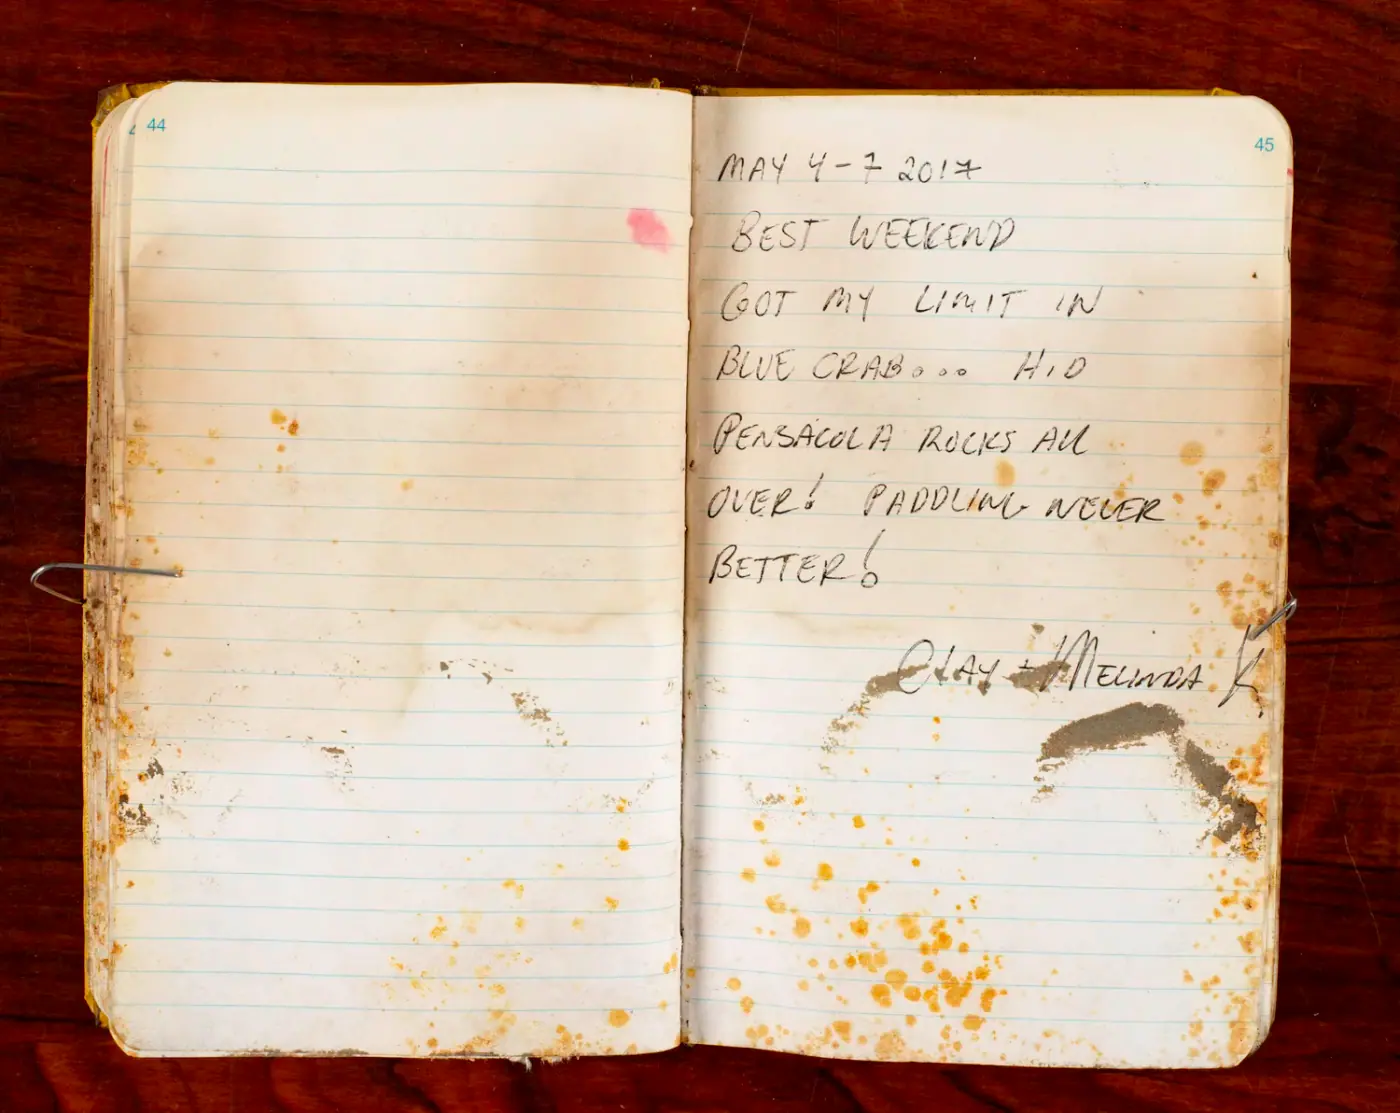 44
45
MAY 4-7 2017
BEST WEEKEND
GOT MY LIMIT IN
BLUE CRAB... H,D
PENSACOLA ROCKS All
OVER! PADDLING NEVER
BETTER!
Clay + MELINDA K